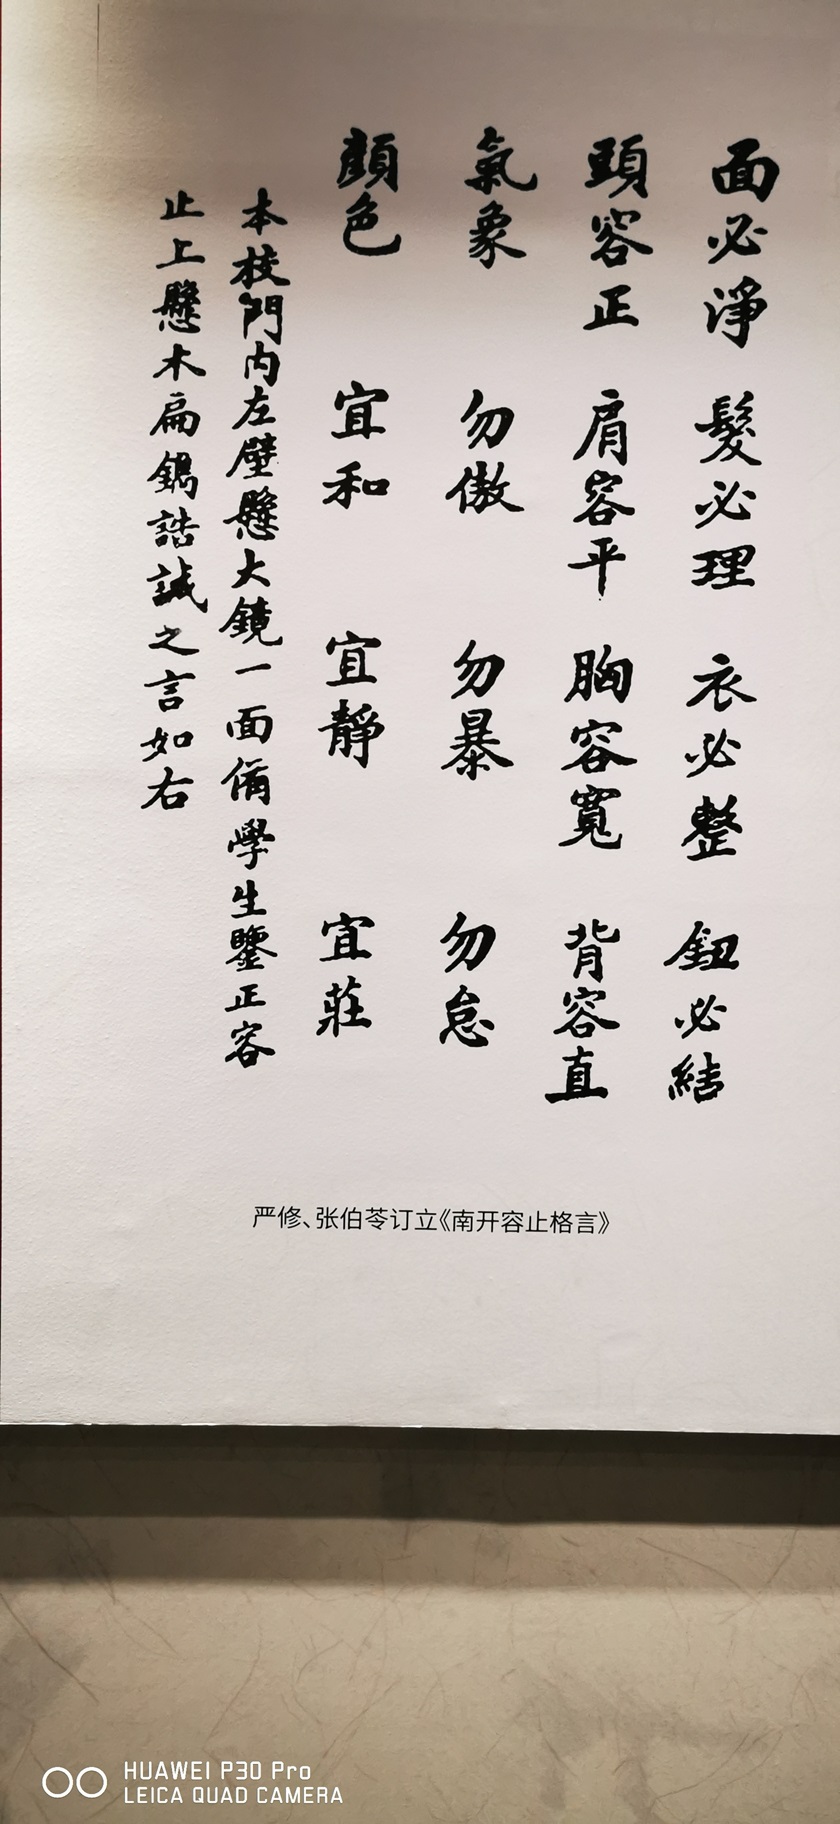 面必淨 髮必理 衣必整 鈕必結
頭容正 肩容平 胸容寬 背容直
氣象 勿傲 勿暴 勿怠
顔色 宜和 宜靜 宜莊
本校門内左壁懸大鏡一面俻學生鑒正容
止上懸木扁鐫誥誡之言如右
严修、张伯苓订立《南开容止格言》
HUAWEI P30 Pro
LEICA QUAD CAMERA